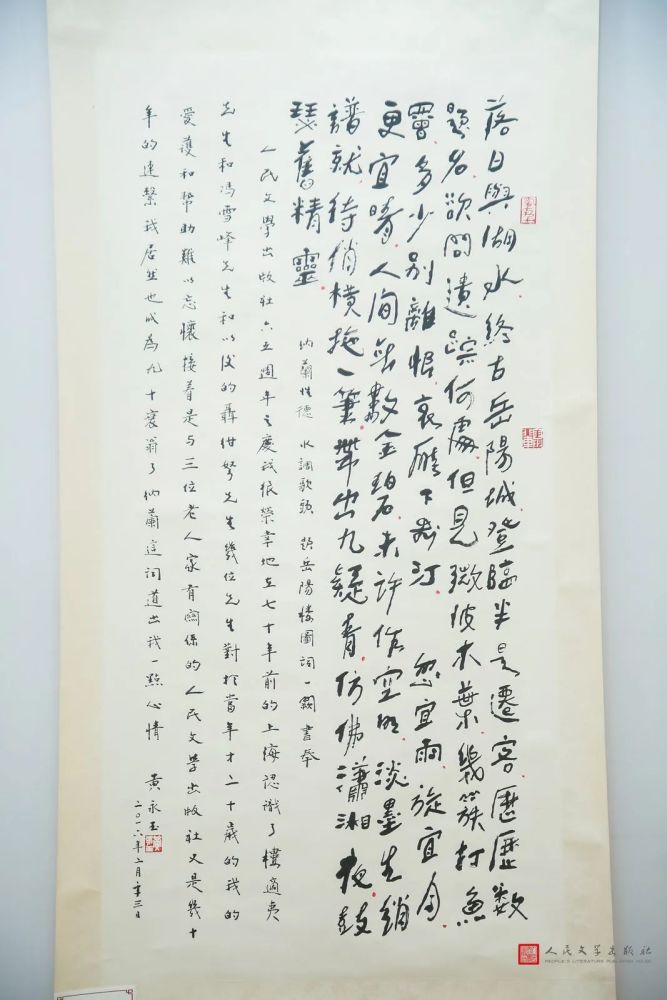 落日與湖水終古岳陽城登臨半是遷客歷歷數
題名欲問遺踪何處但見微波木葉幾簇打魚
罾多少別離恨哀雁下前汀 忽宜雨旋宜月
更宜晴人間無數金碧未許作空明淡墨生綃
譜就待綃橫拖一筆帶出九疑青仿佛瀟湘夜鼓
瑟舊精靈
納蘭性德 水調歌頭 題岳陽楼圖詞一闋 書奉
人民文學出版社六五週年之慶我很榮幸地在七十年前的上海認識了樓適夷
先生和冯雪峰先生和以後的聶紺弩先生幾位先生對於當年才二十歲的我的
愛護和幫助難以忘懷接着是与三位老人家有關係的人民文學出版社又是幾十
年的連繫我居然也成為九十衰翁了納蘭這詞道出我一點心情 黃永玉
二〇一六年二月 三日
人民文学出版社
PEOPLE'S LITERATURE PUBLISHING HOUSE